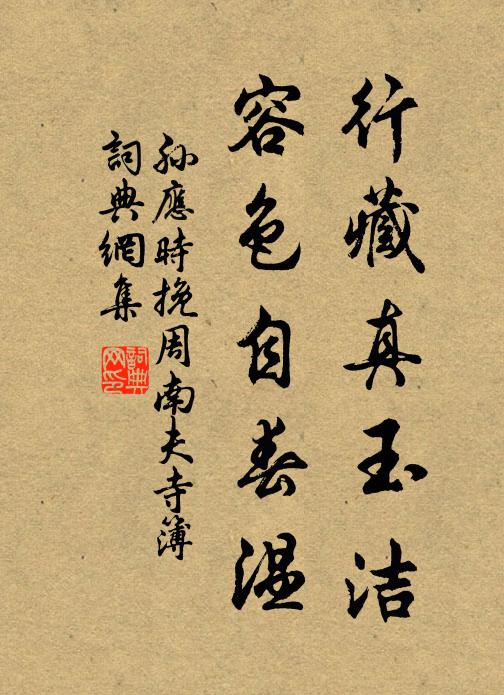 行藏真玉洁
容色自春温
孙應時挽周南夫寺簿
詞典網集
詞典网印